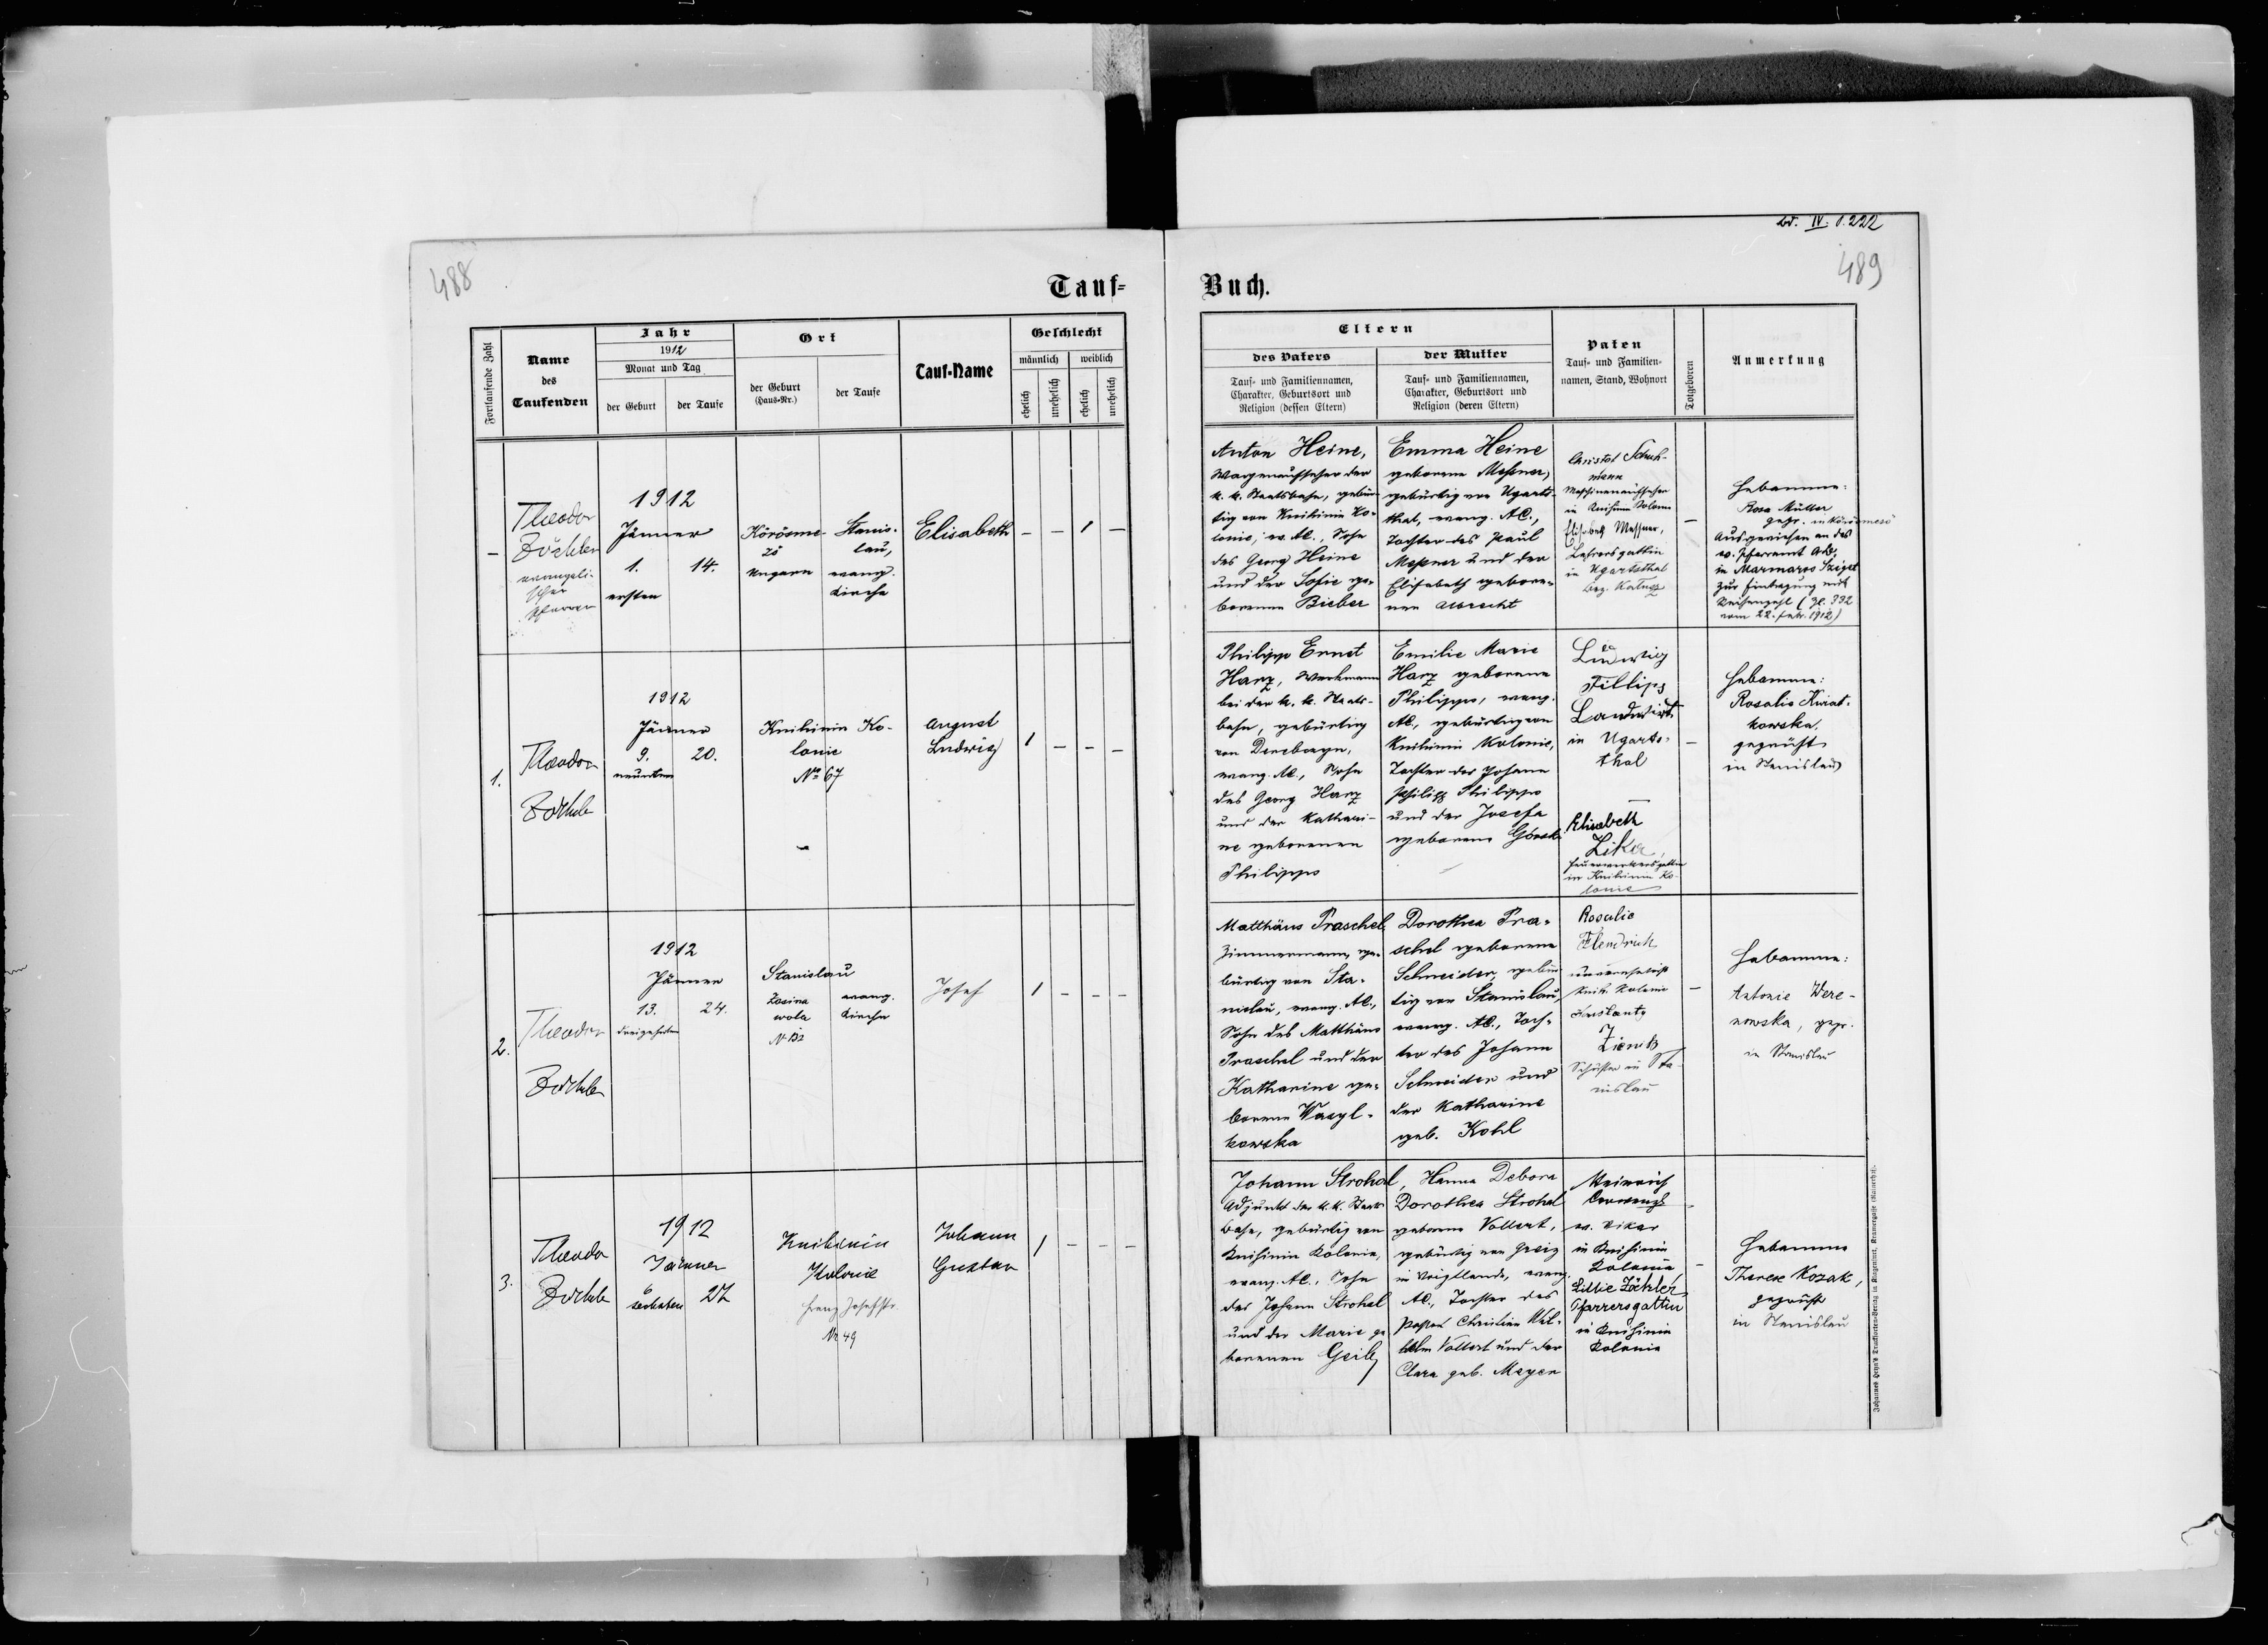 Bd. IV. S. 222
488
489
Tauf=
Buch.
Fortlaufende Zahl
Name
des
Taufenden
Jahr
1912
Monat und Tag
der Geburt
der Taufe
Ort
der Geburt
(Haus-Nr.)
der Taufe
Tauf-Name
Geschlecht
männlich
weiblich
ehelich
unehelich
ehelich
unehelich
Eltern
des Vaters
Tauf- und Familiennamen,
Charakter, Geburtsort und
Religion (dessen Eltern)
der Mutter
Tauf- und Familiennamen,
Charakter, Geburtsort und
Religion (deren Eltern)
Paten
Tauf- und Familien-
namen, Stand, Wohnort
Totgeboren
Anmerkung
–
Theodor
Zöckler
evangeli-
scher
Pfarrer
1912
Jänner
1.
14.
ersten
Körösme-
zö
Ungarn
Stanis-
lau,
evang.
Kirche
Elisabeth
– – 1 –
Anton Heine,
Wagenaufseher der
k. k. Staatsbahn, gebür-
tig von Knihinin Ko-
lonie, ev. AC., Sohn
des Georg Heine
und der Sofie ge-
borenen Bieber
Emma Heine
geborene Messner,
gebürtig von Ugarts-
thal, evang. AC.,
Tochter des Paul
Messner und der
Elisabeth gebore-
nen Albrecht
Christof Schuh-
mann
Maschinenaufseher
in Knihinin Kolonie
Elisabeth Messner,
Lehrersgattin
in Ugartsthal
Bez. Kalusz
–
Hebamme:
Rosa Müller
gepr. in Körösmezö
Ausgewiesen an das
ev. Pfarramt A.B.
in Marmaros Sziget
zur Eintragung mit
Reihenzahl (Zl. 332
vom 22. Febr. 1912)
1.
Theodor
Zöckler
1912
Jänner
9.
20.
neunten
Knihinin Ko-
lonie
No 67
August
Ludwig
1 – – –
Philipp Ernst
Harz, Werkmann
bei der k. k. Staats-
bahn, gebürtig
von Dereboryn,
evang. AC., Sohn
des Georg Harz
und der Kathari-
ne geborenen
Philipps
Emilie Marie
Harz geborene
Philipps, evang.
AC., gebürtig von
Knihinin Kolonie,
Tochter des Johann
Philipp Philipps
und der Josefa
geborene Górski
Ludwig
Fillips
Landwirt
in Ugarts-
thal
Elisabeth
Zika,
Feuerwerkersgattin
in Knihinin Ko-
lonie
–
Hebamme:
Rosalie Kwiat-
kowska,
geprüft
in Stanislau
2.
Theodor
Zöckler
1912
Jänner
13.
24.
dreizehnten
Stanislau
Zosina
wola
evang.
Kirche
Josef
1 – – –
Matthäus Praschel
Zimmermann, ge-
bürtig von Sta-
nislau, evang. AC.,
Sohn des Matthäus
Praschel und der
Katharine ge-
borene Wasyl-
kowska
Dorothea Pra-
schel geborene
Schneider, gebür-
tig von Stanislau,
evang. AC., Toch-
ter des Johann
Schneider und
der Katharine
geb. Kohl
Rosalie
Knih. Kolonie
Schuster in Sta-
nislau
–
Hebamme:
Antonie Were-
nowska, gepr.
in Stanislau
3.
Theodor
Zöckler
1912
Jänner
6
sechsten
27
Knihinin
Kolonie
Franz Josefstr.
Nr 49
Johann
Gustav
1 – – –
Johann Strohal,
Adjunkt der k. k. Staats-
bahn, gebürtig von
Knihinin Kolonie,
evang. AC., Sohn
des Johann Strohal
und der Marie ge-
borenen Geib
Hanna Debora
Dorothea Strohal
geborene Vollert,
gebürtig von Greiz
in Voigtlande, evang.
AC., Tochter des
Pastors Christian Wil-
helm Vollert und der
Clara geb. Meyer
Heinrich
ev. Vikar
in Knihinin
Kolonie
Lillie Zöckler,
Pfarrersgattin
in Knihinin
Kolonie
–
Hebamme
Therese Kozak,
geprüft
in Stanislau